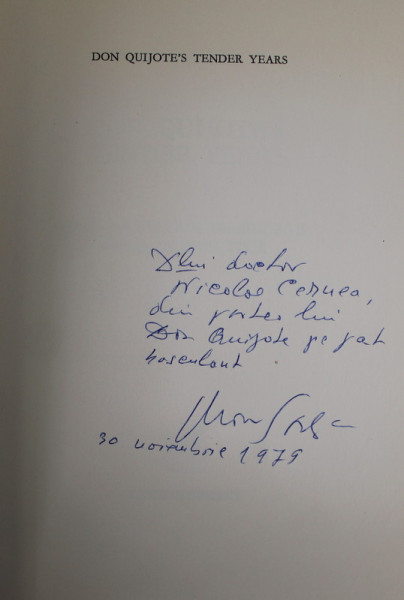 DON QUIJOTE'S TENDER YEARS
Dlui doctor
Nicolae Cernea,
din partea lui
Don Quijote pe pat
30 noiembrie 1979